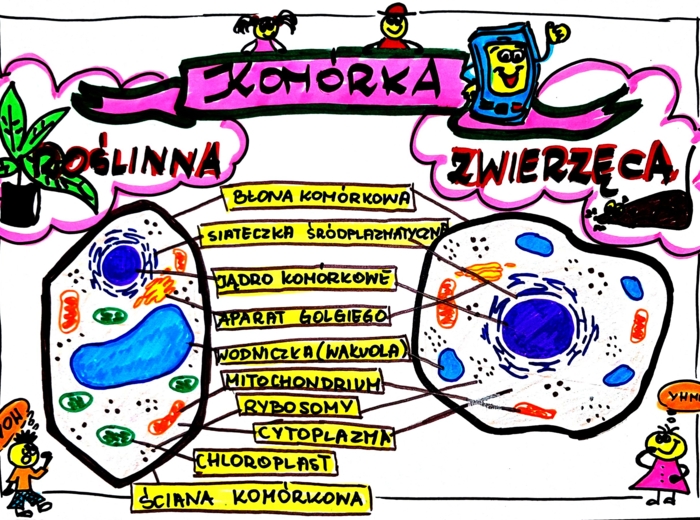 KOMÓRKA
ROŚLINNA
ZWIERZĘCA
BŁONA KOMÓRKOWA
SIATECZKA ŚRÓDPLAZMATYCZNA
JĄDRO KOMÓRKOWE
APARAT GOLGIEGO
WODNICZKA (WAKUOLA)
MITOCHONDRIUM
RYBOSOMY
CYTOPLAZMA
CHLOROPLAST
ŚCIANA KOMÓRKOWA